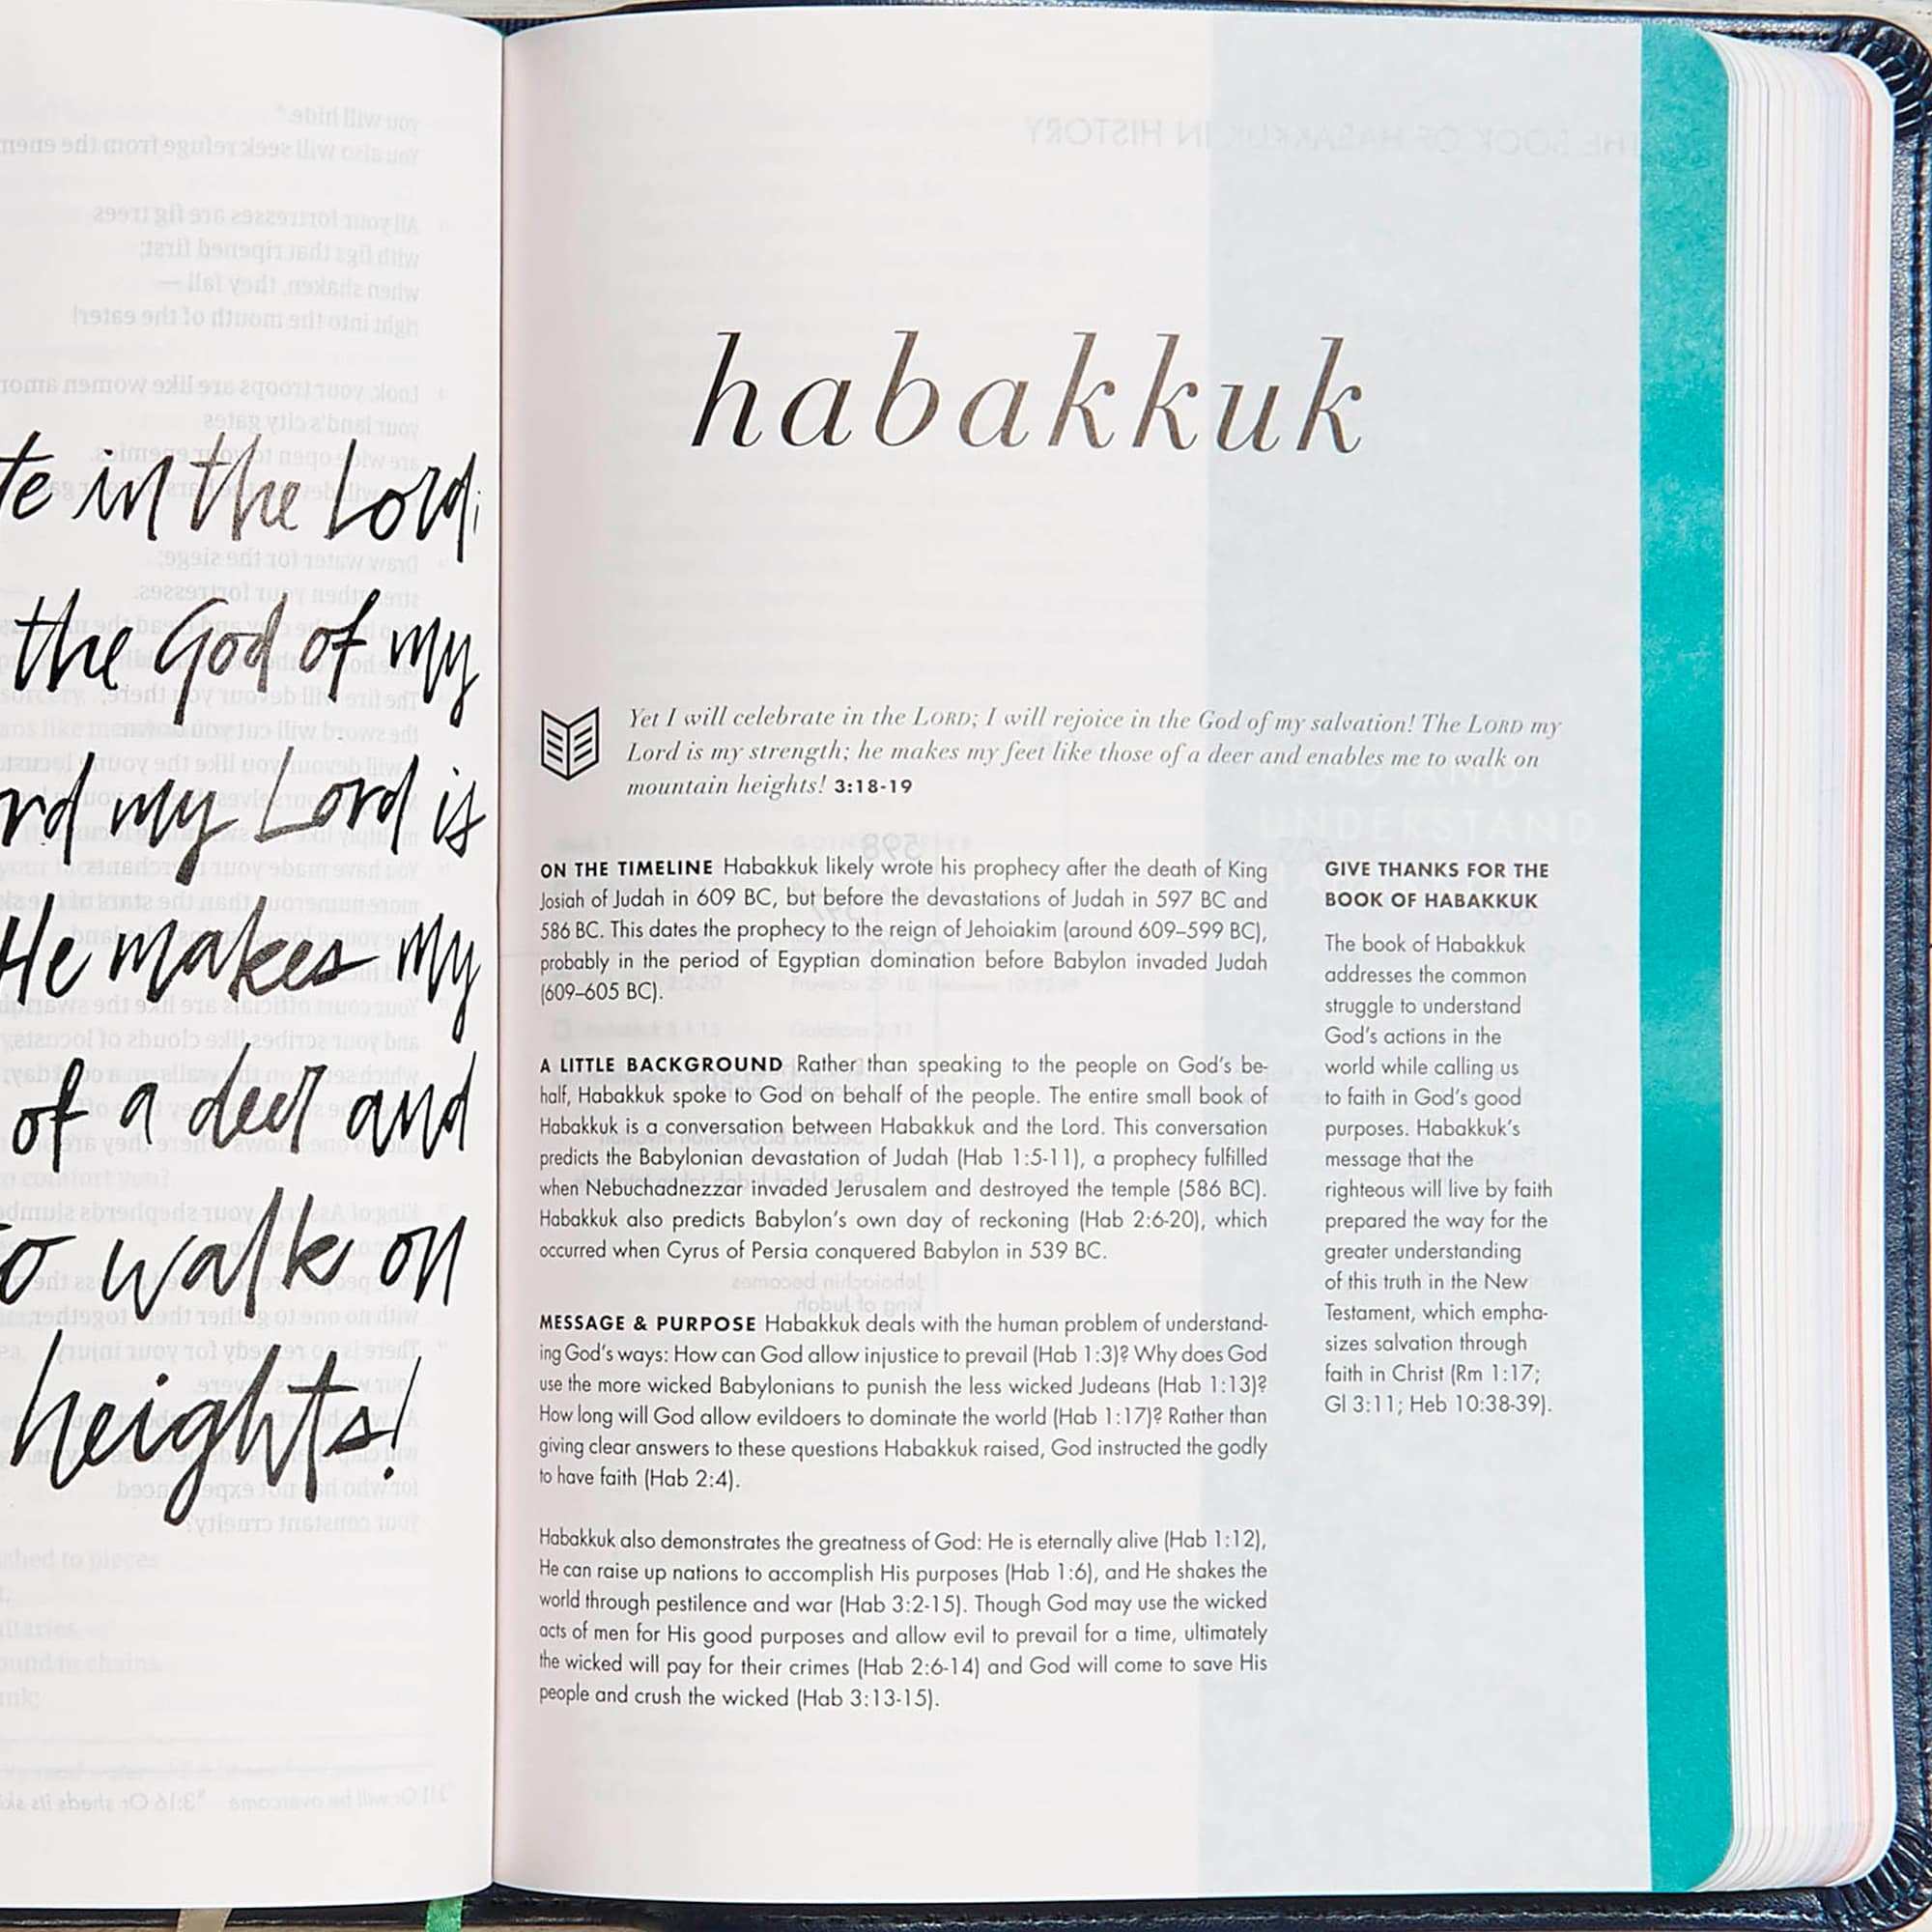 te in the Lord;
the God of my
rd my Lord is
He makes my
of a deer and
to walk on
heights!
habakkuk
Yet I will celebrate in the LORD; I will rejoice in the God of my salvation! The LORD my
Lord is my strength; he makes my feet like those of a deer and enables me to walk on
mountain heights! 3:18-19
ON THE TIMELINE Habakkuk likely wrote his prophecy after the death of King
Josiah of Judah in 609 BC, but before the devastations of Judah in 597 BC and
586 BC. This dates the prophecy to the reign of Jehoiakim (around 609–599 BC),
probably in the period of Egyptian domination before Babylon invaded Judah
(609–605 BC).
A LITTLE BACKGROUND Rather than speaking to the people on God's be-
half, Habakkuk spoke to God on behalf of the people. The entire small book of
Habakkuk is a conversation between Habakkuk and the Lord. This conversation
predicts the Babylonian devastation of Judah (Hab 1:5-11), a prophecy fulfilled
when Nebuchadnezzar invaded Jerusalem and destroyed the temple (586 BC).
Habakkuk also predicts Babylon's own day of reckoning (Hab 2:6-20), which
occurred when Cyrus of Persia conquered Babylon in 539 BC.
MESSAGE & PURPOSE Habakkuk deals with the human problem of understand-
ing God's ways: How can God allow injustice to prevail (Hab 1:3)? Why does God
use the more wicked Babylonians to punish the less wicked Judeans (Hab 1:13)?
How long will God allow evildoers to dominate the world (Hab 1:17)? Rather than
giving clear answers to these questions Habakkuk raised, God instructed the godly
to have faith (Hab 2:4).
Habakkuk also demonstrates the greatness of God: He is eternally alive (Hab 1:12),
He can raise up nations to accomplish His purposes (Hab 1:6), and He shakes the
world through pestilence and war (Hab 3:2-15). Though God may use the wicked
acts of men for His good purposes and allow evil to prevail for a time, ultimately
the wicked will pay for their crimes (Hab 2:6-14) and God will come to save His
people and crush the wicked (Hab 3:13-15).
GIVE THANKS FOR THE
BOOK OF HABAKKUK
The book of Habakkuk
addresses the common
struggle to understand
God's actions in the
world while calling us
to faith in God's good
purposes. Habakkuk's
message that the
righteous will live by faith
prepared the way for the
greater understanding
of this truth in the New
Testament, which empha-
sizes salvation through
faith in Christ (Rm 1:17;
Gl 3:11; Heb 10:38-39).